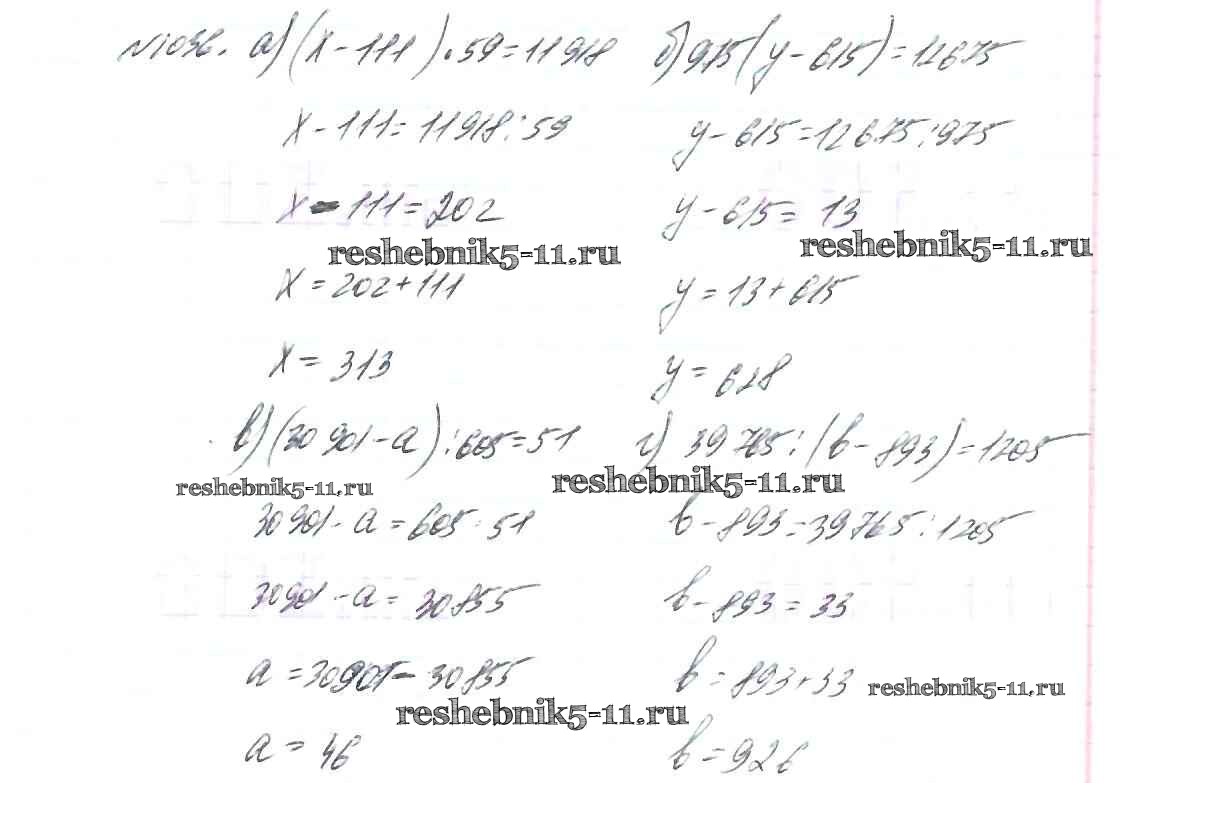 №1036. а) (x - 111) · 59 = 11918
x - 111 = 11918 : 59
x - 111 = 202
reshebnik5-11.ru
x = 202 + 111
x = 313
б) 975(y - 615) = 12675
y - 615 = 12675 : 975
y - 615 = 13
reshebnik5-11.ru
y = 13 + 615
y = 628
в) (30901 - a) : 605 = 51
reshebnik5-11.ru
30901 - a = 605 · 51
30901 - a = 30855
a = 30901 - 30855
reshebnik5-11.ru
a = 46
г) 39765 : (b - 893) = 1205
reshebnik5-11.ru
b - 893 = 39765 : 1205
b - 893 = 33
b = 893 + 33
reshebnik5-11.ru
b = 926